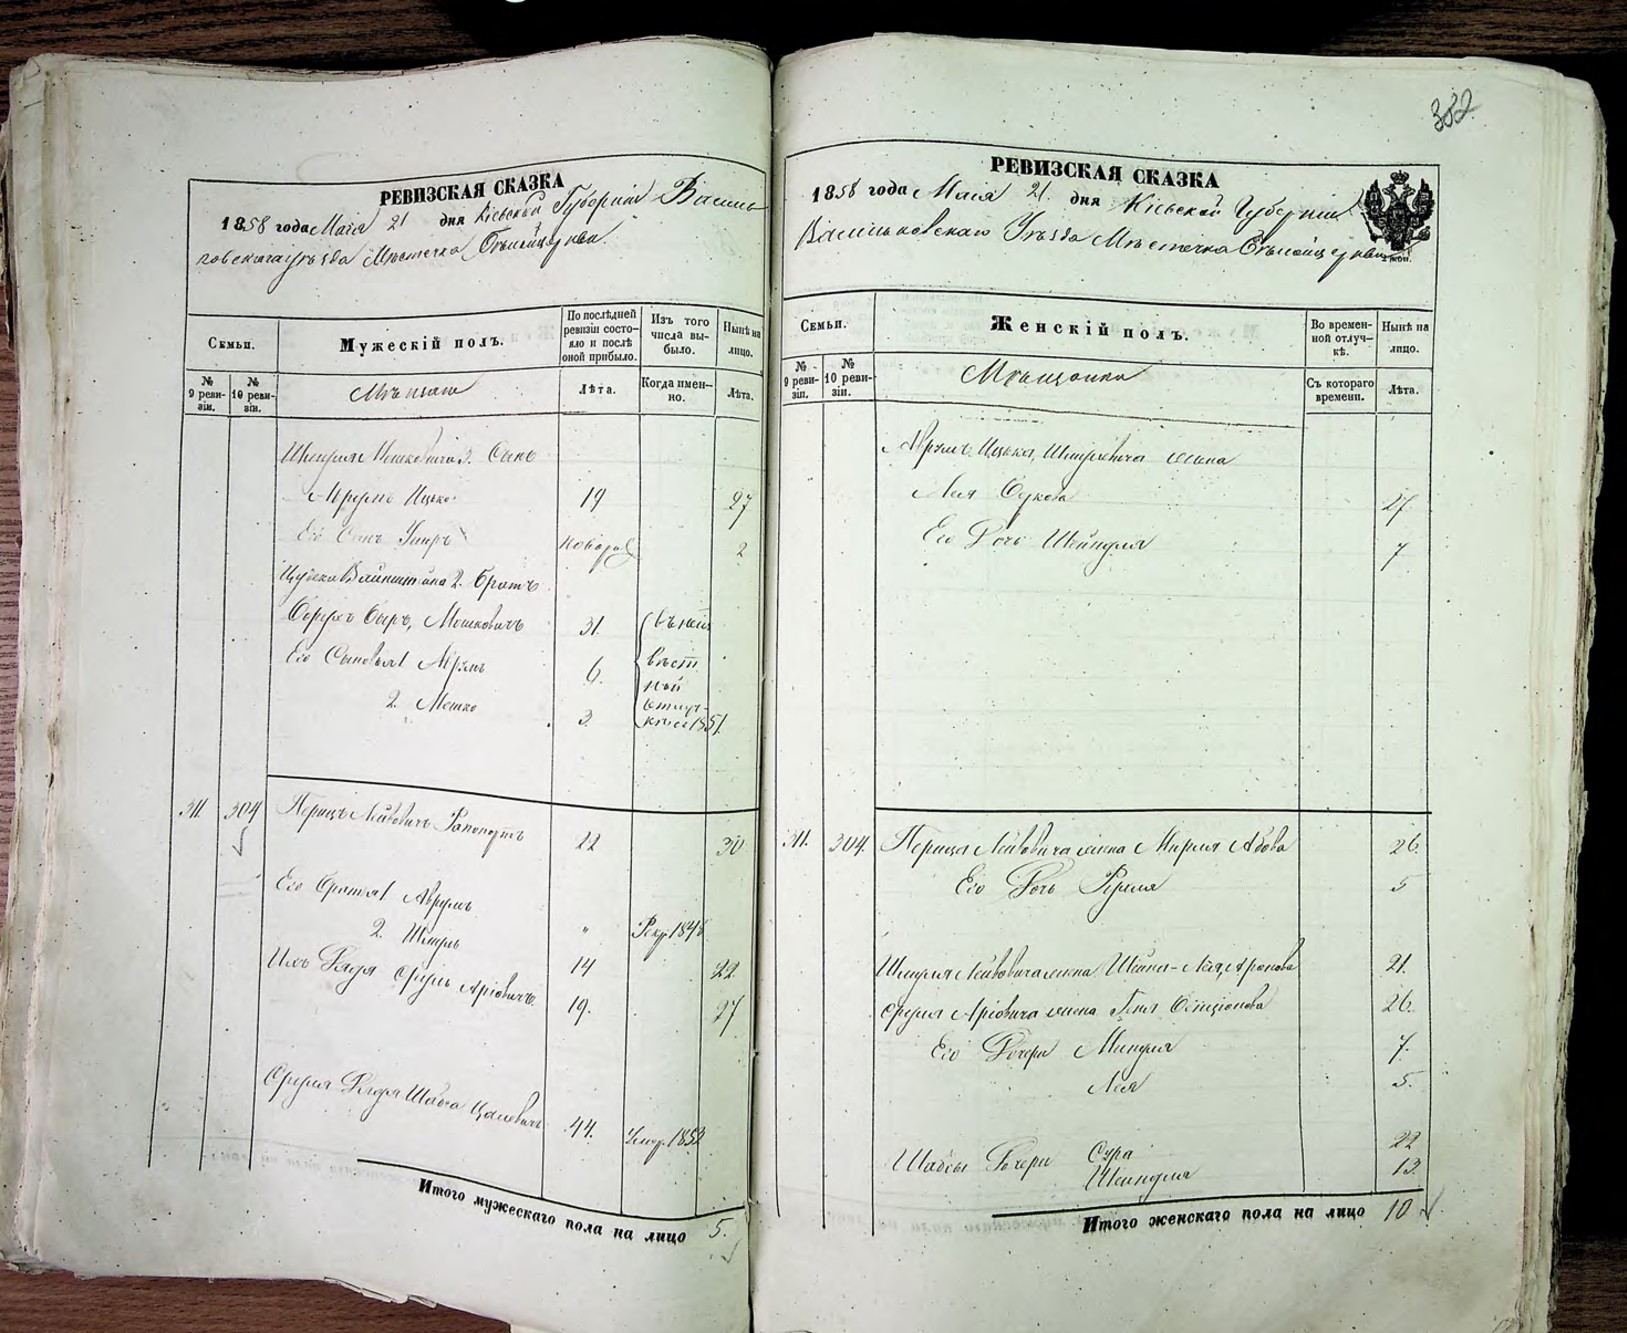 382
РЕВИЗСКАЯ СКАЗКА
1858 года Маія 21 дня Кіевской Губерніи Василь
ковскаго уѣзда Мѣстечка Бѣлойцеркви.
Семьи.
Мужескій полъ.
По послѣдней ревизіи состояло и послѣ оной прибыло.
Изъ того числа выбыло.
Нынѣ на лицо.
№ 9 ревизіи.
№ 10 ревизіи.
Мѣщане
Лѣта.
Когда именно.
Лѣта.
Шмуля Мошковича 3. Сынъ
Аврумъ Ицко 19 27
Его Сынъ новорож 2
Вайнштейна 2. братъ
Борухъ Беръ, Мошковичъ 31.
Его Сыновья 1 Аврумъ 6.
2. Мошко 3.
отлуч-
кѣ съ 1851.
311. 304 Перецъ Лейбовичъ Рапопортъ 22 30
Его братья 1 Аврумъ " Рекр. 1848
2. Шмуль 14 22
Ихъ Дядя Сруль Аріовичъ 19. 27
Сруля Дядя Шабса 44. Умер. 1853
Итого мужескаго пола на лицо 5.
РЕВИЗСКАЯ СКАЗКА
1858 года Маія 21. дня Кіевской Губерніи
Васильковскаго Уѣзда Мѣстечка Бѣлойцеркви
Семьи.
Женскій полъ.
Во временной отлучкѣ.
Нынѣ на лицо.
№ 9 ревизіи.
№ 10 ревизіи.
Мѣщанки
Съ котораго времени.
Лѣта.
Аврумъ Ицька, Шмулевича жена
Лея 27.
Его Дочь Шейндля 7
311. 304. Переца Лейбовича жена Мирля 26.
Его Дочь Рухля 5
Шмуля Лейбовича жена Шейна-Лея, Аронова 21.
Сруля Аріовича жена 26.
Его Дочери Миндля 7.
Лея 5.
Шабсы Дочери Сура 22
Шейндля 13.
Итого женскаго пола на лицо 10